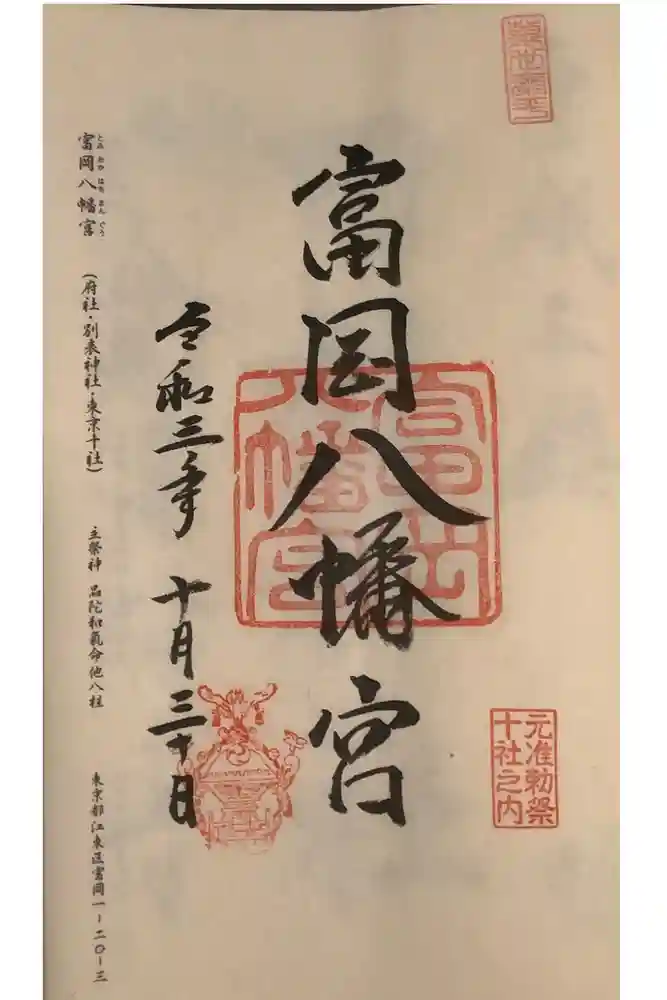 富岡八幡宮
元准勅祭
十社之内
富岡
八幡宮
令和三年 十月三十日
富岡八幡宮
とみ おか はち まん ぐう
(府社・別表神社・東京十社)
主祭神 品陀和氣命他八柱
東京都江東区富岡一ー二〇ー三